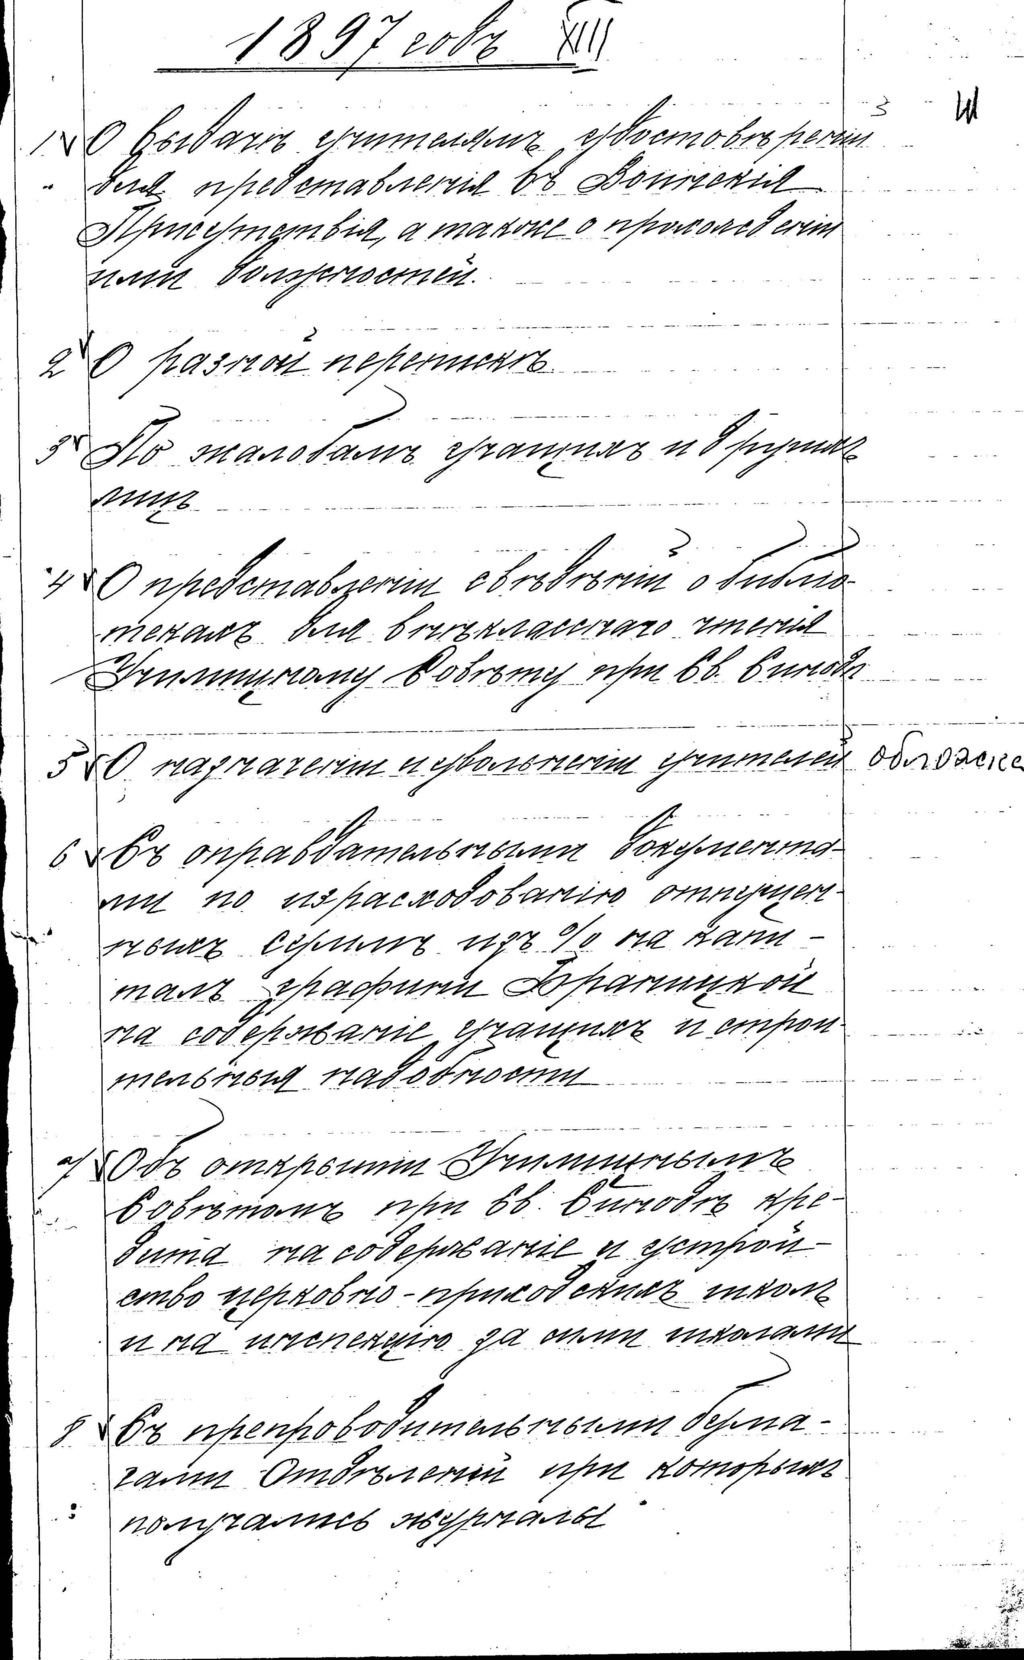 1897 годъ XIII
1 О выдачѣ учителямъ удостовѣренiй
для представленiя въ Воинскiя
Присутствiя, а также о прохожденiи
ими должностей.
2 О разной перепискѣ
3 По жалобамъ учащихъ и другихъ
лицъ
4 О представленiи свѣдѣнiй о библiо-
текахъ для внѣкласснаго чтенiя
Училищному Совѣту при Св. Синодѣ
5 О назначенiи и увольненiи учителей обложка
6 Съ оправдательными документа-
ми по израсходованiю отпущен-
ныхъ суммъ изъ % на капи-
талъ графини Браницкой
на содержанiе учащихъ и строи-
тельныя надобности
7 Объ открытiи Училищнымъ
Совѣтомъ при Св. Синодѣ кре-
дита на содержанiе и устрой-
ство церковно-приходскихъ школъ
и на инспекцiю за сими школами
8 Съ препроводительными бума-
гами Отдѣленiй при которыхъ
получались журналы